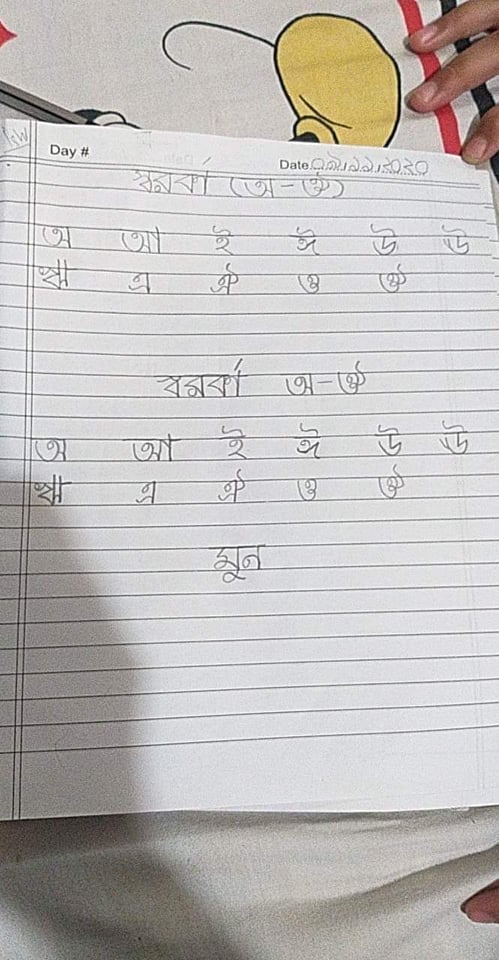 Day # Date ০৯/১১/২০২০
স্বরবর্ণ (অ-ঔ)
অ আ ই ঈ উ ঊ
ঋ এ ঐ ও ঔ
স্বরবর্ণ অ-ঔ
অ আ ই ঈ উ ঊ
ঋ এ ঐ ও ঔ
মুন